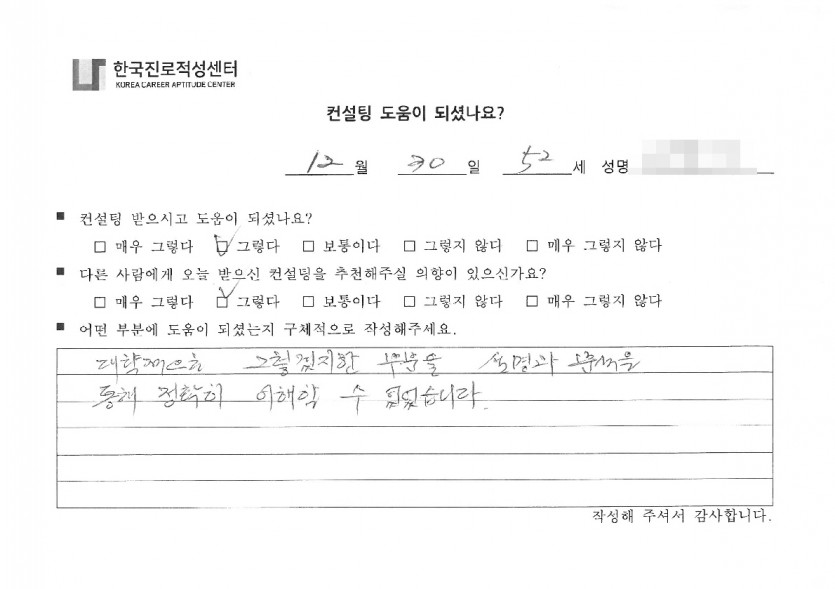 한국진로적성센터
KOREA CAREER APTITUDE CENTER
컨설팅 도움이 되셨나요?
12 월 30 일 52 세 성명
■ 컨설팅 받으시고 도움이 되셨나요?
□ 매우 그렇다 ☑ 그렇다 □ 보통이다 □ 그렇지 않다 □ 매우 그렇지 않다
■ 다른 사람에게 오늘 받으신 컨설팅을 추천해주실 의향이 있으신가요?
□ 매우 그렇다 ☑ 그렇다 □ 보통이다 □ 그렇지 않다 □ 매우 그렇지 않다
■ 어떤 부분에 도움이 되셨는지 구체적으로 작성해주세요.
부분을 설명과 분석을
통해 정확히 이해할 수 있었습니다.
작성해 주셔서 감사합니다.